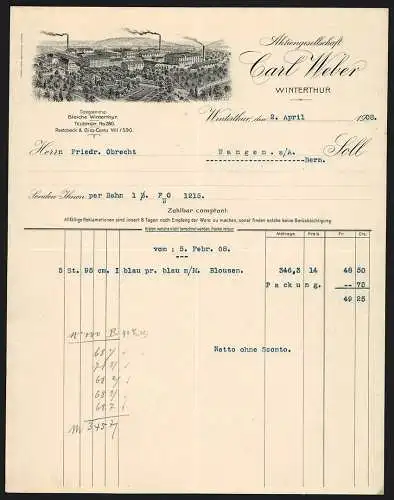 Aktiengesellschaft
Carl Weber
WINTERTHUR
Telegramme:
Bleiche Winterthur.
Telephon No 280.
Postcheck & Giro-Conto VIII / 590.
Winterthur, den 2. April 1908.
Herrn Friedr. Obrecht Wangen. a/A. Soll
Bern.
Senden Ihnen per Bahn 1 F O 1215.
Zahlbar comptant.
Allfällige Reklamationen sind innert 8 Tagen nach Empfang der Ware zu machen, sonst finden solche keine Berücksichtigung
Kisten welche nicht berechnet werden, franko retour
Fr. Cts.
vom : 5. Febr. 08.
5 St. 95 cm. I blau pr. blau m/M. Blousen. 346,3 14 48 50
Packung. -- 70
49 25
Netto ohne Sconto.